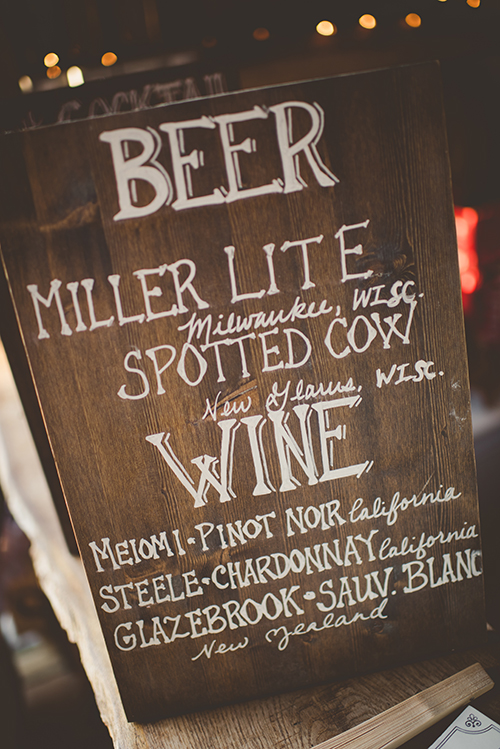 COCKTAIL
BEER
MILLER LITE
Milwaukee, WISC.
SPOTTED COW
New Glarus, WISC.
WINE
MEIOMI • PINOT NOIR California
STEELE • CHARDONNAY California
GLAZEBROOK • SAUV. BLANC
New Zealand